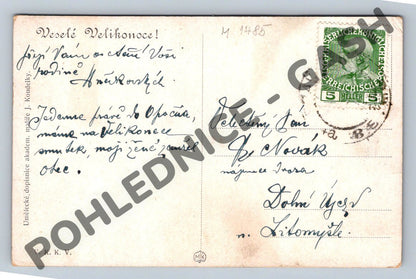 M 1785
Veselé Velikonoce!
přejí Vám a ctěné Vaší
rodině
Jedeme právě do Opočna,
máme na Velikonoce
smutek, mojí ženě zemřel
otec.
Umělecké dopisnice akadem. malíře J. Kondelky.
K. K. V.
5 HELLER 5
Velectěný Pan
Novák
nájemce dvora
Dolní Újezd
u Litomyšle.
POHLEDNICE - GASH